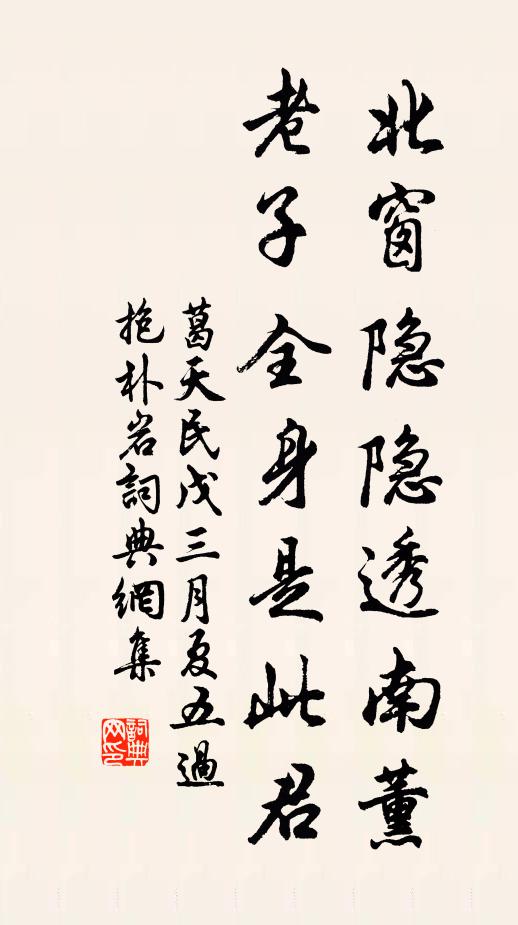 北窗隐隐透南薰
老子全身是此君
葛天民戊三月夏五過
抱朴岩詞典網集
詞典網印